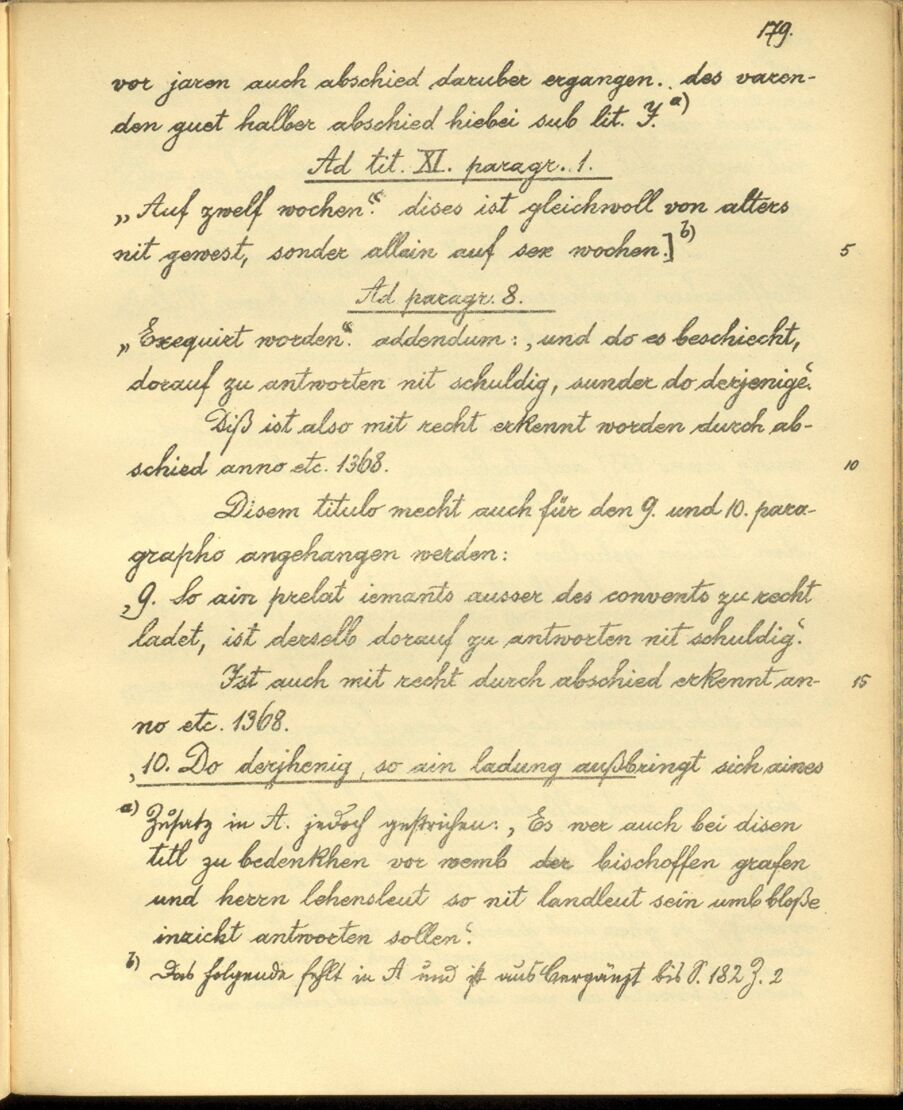 179.
vor jaren auch abschied daruber ergangen.. des varen-
den guet halber abschied hiebei sub lit. J. a)
Ad tit. XI. paragr. 1.
„Auf zwelf wochen“. dises ist gleichwoll von alters
nit gewest, sonder allain auf sex wochen.] b)
5
Ad paragr. 8.
„Exequirt worden“. addendum: ‚und do es beschiecht,
dorauf zu antworten nit schuldig, sunder do derjenige‘.
Diß ist also mit recht erkennt worden durch ab-
schied anno etc. 1368.
10
Disem titulo mecht auch für den 9. und 10. para-
grapho angehangen werden:
‚9. So ain prelat iemants ausser des convents zu recht
ladet, ist derselb dorauf zu antworten nit schuldig‘.
Ist auch mit recht durch abschied erkennt an-
15
no etc. 1368.
‚10. Do derjhenig, so ain ladung außbringt sich aines
a) Zusatz in A. jedoch gestrichen: ‚Es wer auch bei disen
titl zu bedenkhen vor wemb der bischoffen grafen
und herrn lehensleut so nit landleut sein umb bloße
inzicht antworten sollen‘.
b) Das folgende fehlt in A und ist aus C ergänzt bis S. 182 Z. 2